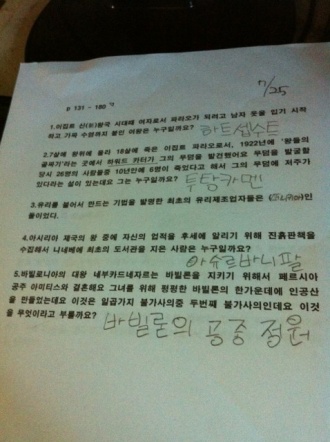 7/25
p 131 - 180
1.이집트 신(新)왕국 시대에 여자로서 파라오가 되려고 남자 옷을 입기 시작
하고 가짜 수염까지 붙인 여왕은 누구일까요? 하트셉수트
2.7살에 왕위에 올라 18살에 죽은 이집트 파라오로서, 1922년에 '왕들의
골짜기'라는 곳에서 하워드 카터가 그의 무덤을 발견했어요 무덤을 발굴할
당시 26명의 사람들중 10년안에 6명이 죽었다고 해서 그의 무덤에 저주가
있다라는 설이 있는데요 그는 누구일까요? 투탕카멘
3.유리를 불어서 만드는 기법을 발명한 최초의 유리제조업자들은 (페니키아)인
들이었다.
4.아시리아 제국의 왕 중에 자신의 업적을 후세에 알리기 위해 진흙판책을
수집해서 니네베에 최초의 도서관을 지은 사람은 누구일까요?
아슈르바니팔
5.바빌로니아의 대왕 네부카드네자르는 바빌론을 지키기 위해서 페르시아
공주 아미티스와 결혼해요 그녀를 위해 평평한 바빌론의 한가운데에 인공산
을 만들었는데요 이것은 일곱가지 불가사의중 두번째 불가사의인데요 이것
을 무엇이라고 부를까요? 바빌론의 공중 정원